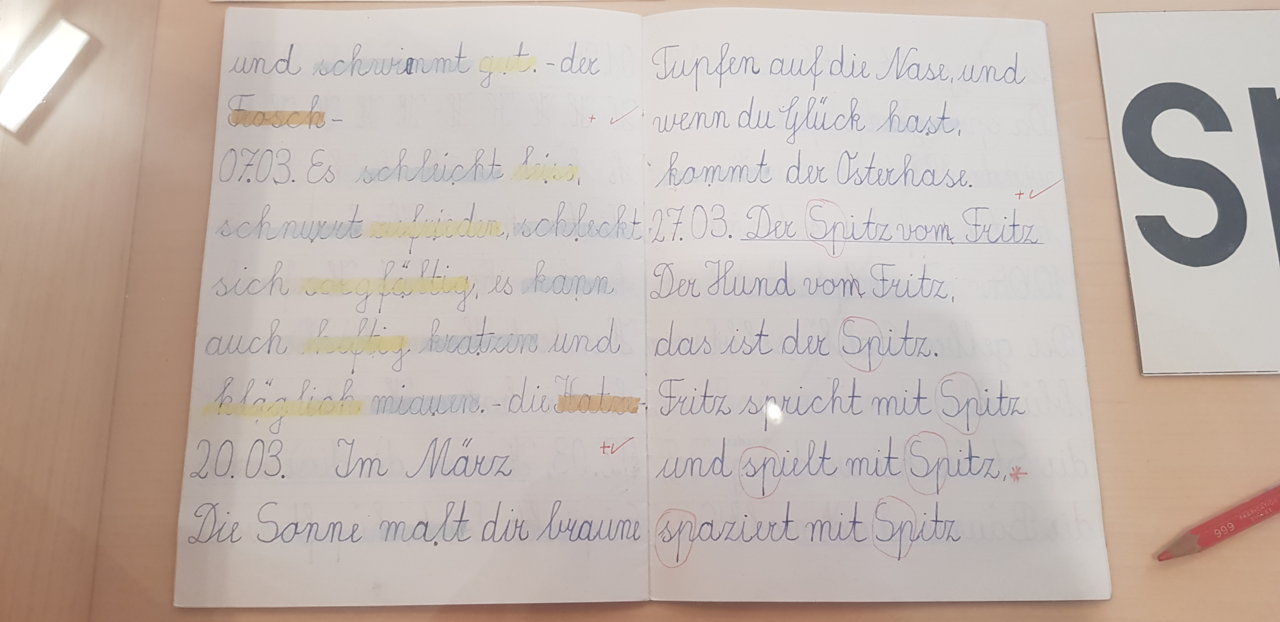 und schwimmt gut. - der
Frosch -
07.03. Es schleicht leise,
schnurrt zufrieden, schleckt
sich sorgfältig, es kann
auch heftig kratzen und
kläglich miauen. - die Katze -
20.03. Im März
Die Sonne malt dir braune
Tupfen auf die Nase, und
wenn du Glück hast,
kommt der Osterhase.
27.03. Der Spitz vom Fritz
Der Hund vom Fritz,
das ist der Spitz.
Fritz spricht mit Spitz
und spielt mit Spitz,
spaziert mit Spitz
Sp
999